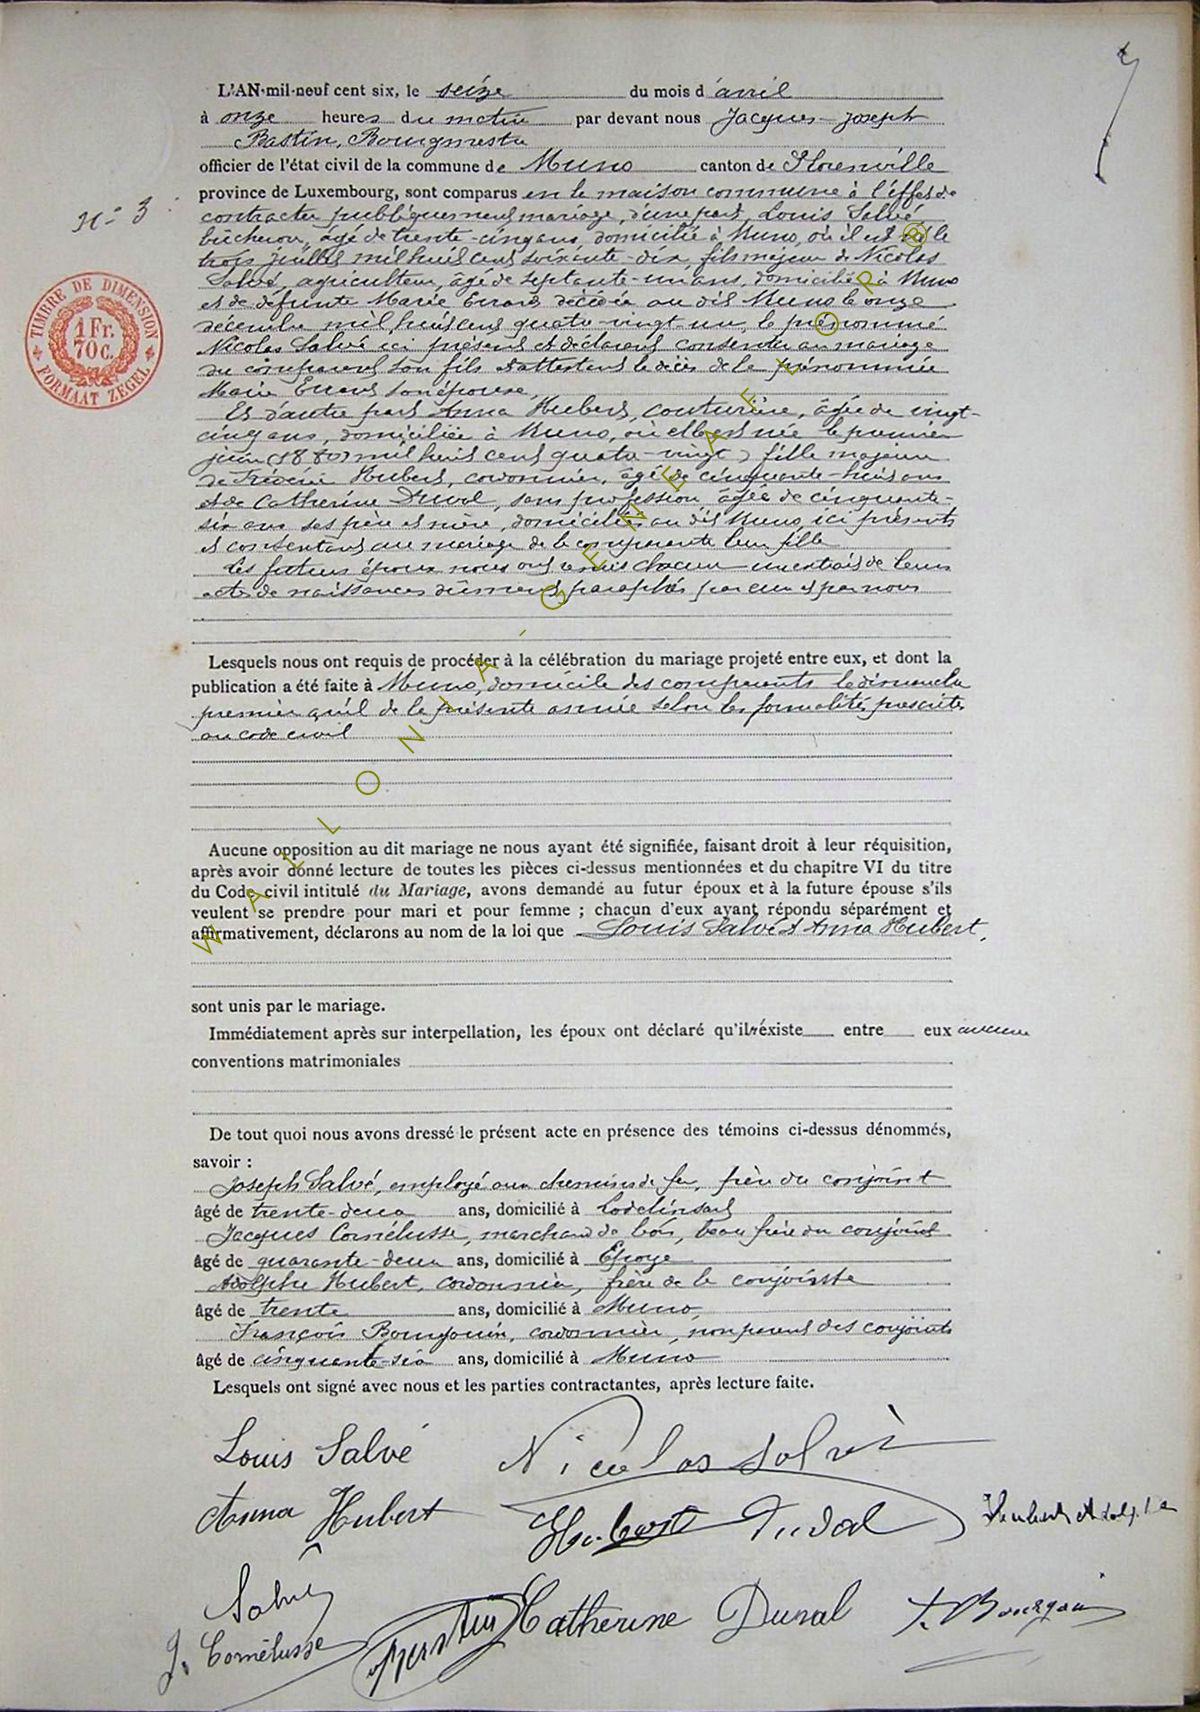 L'AN mil-neuf cent six, le seize du mois d'avril
à onze heures du matin par devant nous Jacques-Joseph
Bastin, Bourgmestre
officier de l'état civil de la commune de Muno canton de Florenville
province de Luxembourg, sont comparus en la maison commune à l'effet de
N° 3
contracter publiquement mariage, d'une part, Louis Salvé
bûcheron, âgé de trente-cinq ans, domicilié à Muno, où il est né le
trois juillet mil huit cent soixante-dix, fils majeur de Nicolas
Salvé, agriculteur, âgé de septante-un ans, domicilié à Muno
et de défunte Marie Evrard décédée au dit Muno le onze
décembre mil huit cent quatre-vingt-un, le prénommé
Nicolas Salvé ici présent et déclarant consentir au mariage
du comparant son fils et attestant le décès de la prénommée
Marie Evrard son épouse.
Et d'autre part Anna Hubert, couturière, âgée de vingt-
cinq ans, domiciliée à Muno, où elle est née le premier
juin (1880) mil huit cent quatre-vingt) fille majeure
de Frédéric Hubert, cordonnier, âgé de cinquante-huit ans
et de Catherine Duval, sans profession, âgée de cinquante-
six ans ses père et mère, domiciliés au dit Muno, ici présents
et consentant au mariage de la comparante leur fille
Les futurs époux nous ont remis chacun un extrait de leurs
actes de naissances dûment paraphés par eux et par nous
TIMBRE DE DIMENSION
1 Fr.
70 c.
FORMAAT ZEGEL
Lesquels nous ont requis de procéder à la célébration du mariage projeté entre eux, et dont la
publication a été faite à Muno, domicile des comparants le dimanche
premier avril de la présente année selon les formalités prescrites
au code civil
Aucune opposition au dit mariage ne nous ayant été signifiée, faisant droit à leur réquisition,
après avoir donné lecture de toutes les pièces ci-dessus mentionnées et du chapitre VI du titre
du Code civil intitulé du Mariage, avons demandé au futur époux et à la future épouse s'ils
veulent se prendre pour mari et pour femme ; chacun d'eux ayant répondu séparément et
affirmativement, déclarons au nom de la loi que Louis Salvé et Anna Hubert,
sont unis par le mariage.
Immédiatement après sur interpellation, les époux ont déclaré qu'il n'éxiste entre eux aucune
conventions matrimoniales
De tout quoi nous avons dressé le présent acte en présence des témoins ci-dessus dénommés,
savoir :
Joseph Salvé, employé aux chemins de fer, frère du conjoint
âgé de trente-deux ans, domicilié à Lodelinsart
Jacques Cornélusse, marchand de bois, beau frère du conjoint
âgé de quarante-deux ans, domicilié à Epoye
Adolphe Hubert, cordonnier, frère de la conjointe
âgé de trente ans, domicilié à Muno
François Bourgouin, cordonnier, non parent des conjoints
âgé de cinquante-six ans, domicilié à Muno
Lesquels ont signé avec nous et les parties contractantes, après lecture faite.
Louis Salvé Nicolas Salvé
Anna Hubert Hubert Duval Hubert Adolphe
Salvé
J. Cornélusse Bastin Catherine Duval F. Bourgouin
WALLONIA-GENEALOP®